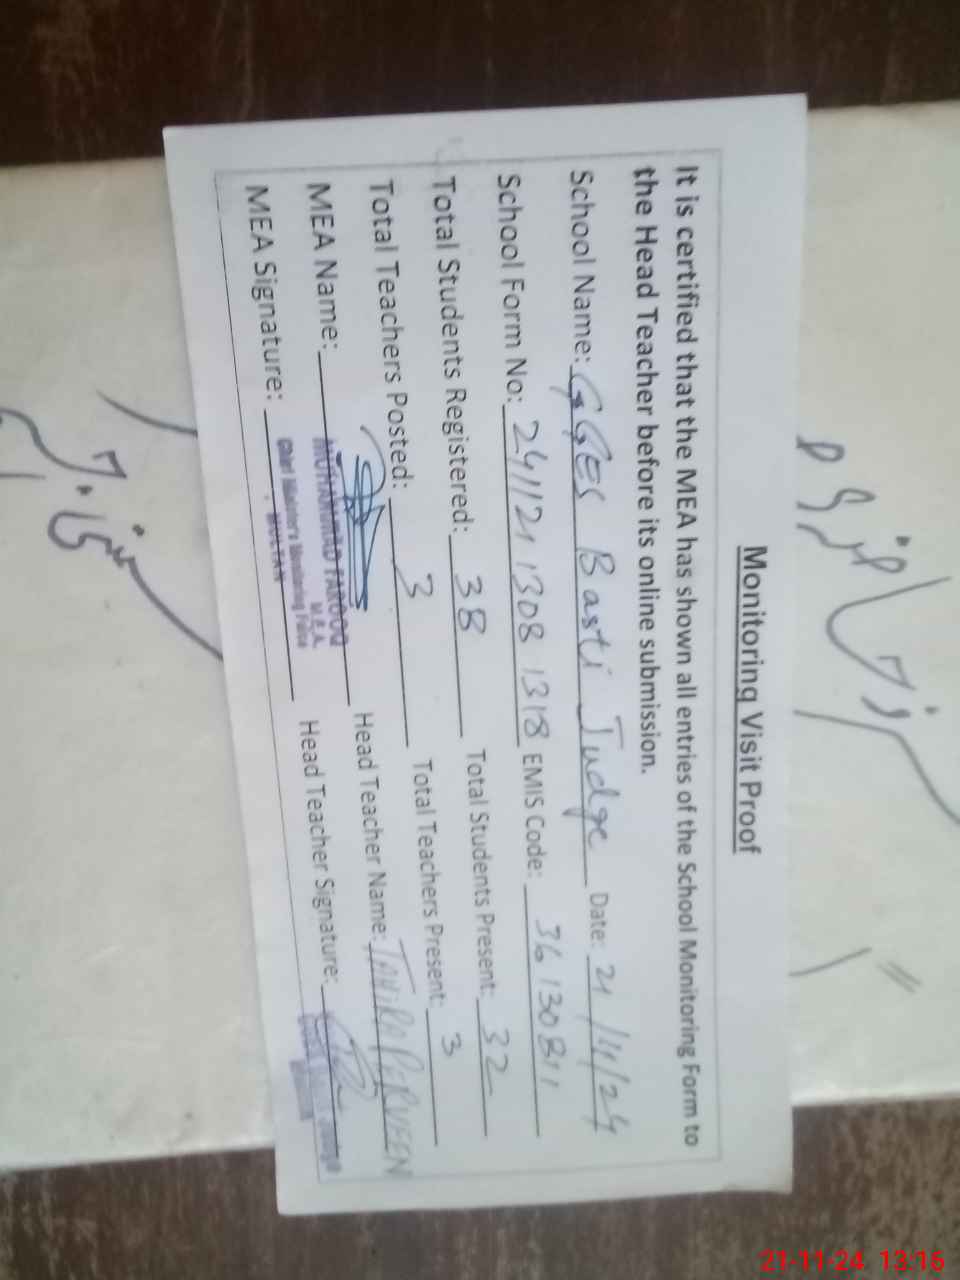 Monitoring Visit Proof
It is certified that the MEA has shown all entries of the School Monitoring Form to
the Head Teacher before its online submission.
School Name: GGES Basti Judge Date: 21/11/24
School Form No: 241121 1308 1318 EMIS Code: 36130811
Total Students Registered: 38 Total Students Present: 32
Total Teachers Posted: 3 Total Teachers Present: 3
MEA Name: MUHAMMAD FAROOQ Head Teacher Name: TAHIRA PARVEEN
M.E.A.
MEA Signature: Chief Minister's Monitoring Force Head Teacher Signature:
MULTAN
21-11-24 13:16